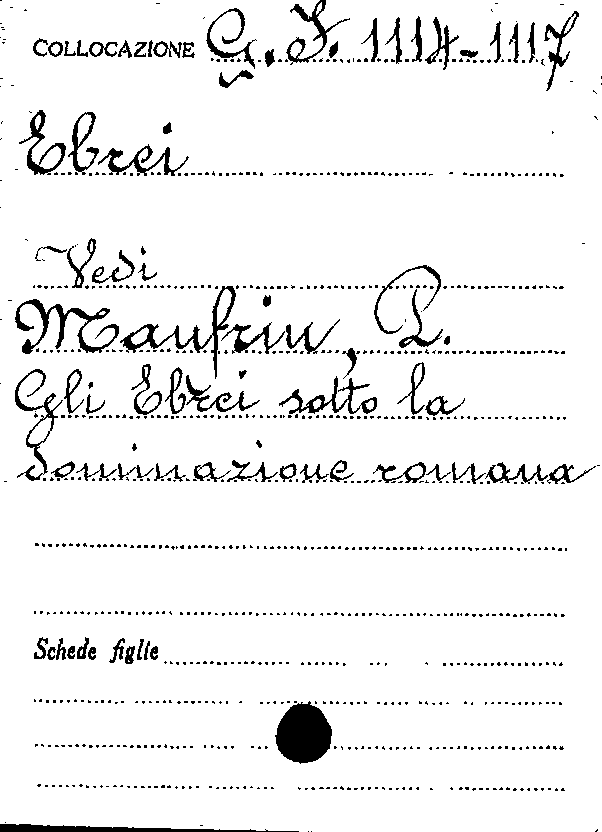 COLLOCAZIONE G. F. 1114-1117
Ebrei
Vedi
Manfrin, P.
Gli Ebrei sotto la
dominazione romana
Schede figlie